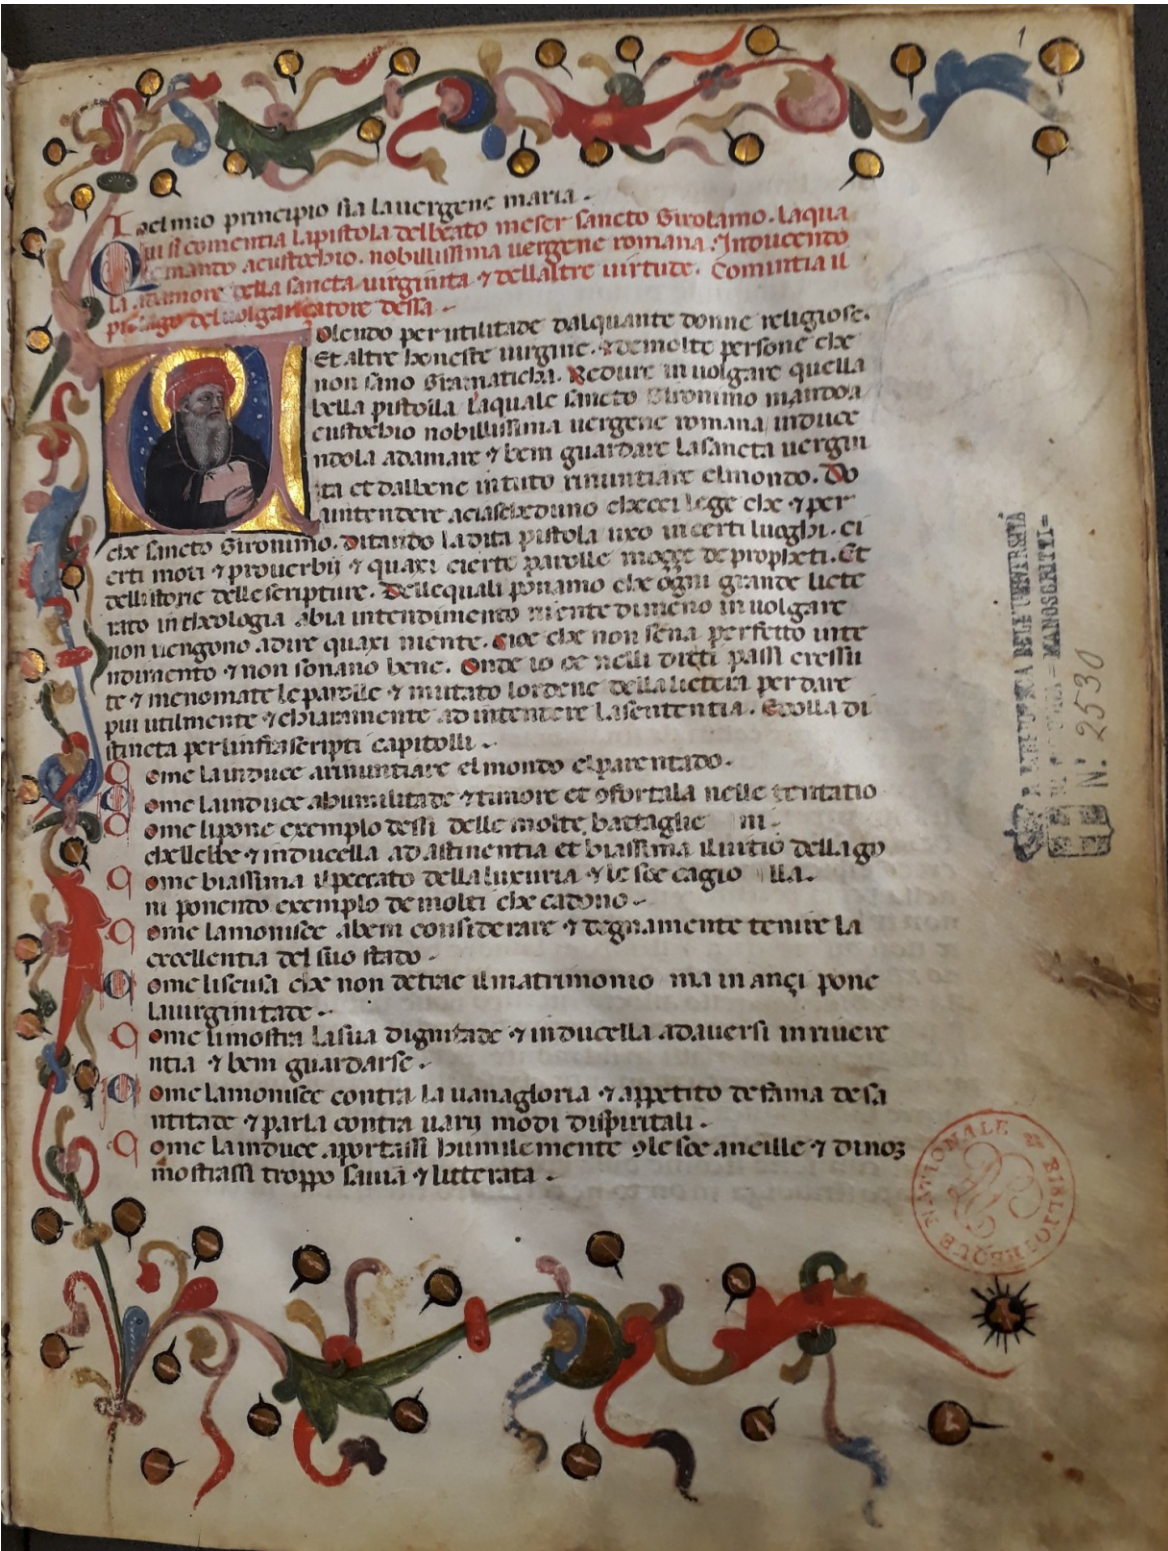 1
Nel mio principio sia la uergene maria.
Qui si comentia la pistola del beato meser sancto Girolamo. la qua
le mando a eustochio. nobilissima uergene romana. Inducendo
la ad amore della sancta uirginita ⁊ dell altre uirtude. Comintia il
prolago del uolgaricatore dessa.
Uolendo per utilitade dalquante donne religiose.
Et altre honeste uirgine. ⁊ de molte persone che
non sano Gramaticha. Redure in uolgare quella
bella pistolla laquale sancto Gironimo mando a
eustochio nobillissima uergene romana induce
ndola adamare ⁊ bem guardare la sancta uergin
ita et dalbene in tuto rinuntiare el mondo. Do
a intendere a ciascheduno che cci lege che ⁊ per
che sancto Gironimo. ditando la dita pistola uxo in certi luoghi. ci
erti moti ⁊ prouerbij ⁊ quaxi cierte parolle moçe de propheti. Et
dell istorie delle scripture. Delle quali poniamo che ogni grande liete
rato in theologia abia intendimento niente di meno in uolgare
non uengono a dire quaxi niente. cioe che non sena perfetto inte
ndimento ⁊ non sonano bene. Onde io oe nelli dicti passi cressu
te ⁊ menomate le parolle ⁊ mutato lordene della lietera per dare
piu utilmente ⁊ chiaramente ad intendere la sententia. Eçolla di
stincta per linfrascripti capitolli.
Come la induce a rinuntiare el mondo el parentado.
Come la induce a humilitade ⁊ timore et 9fortala nelle tentatio
Come li pone exemplo dessi delle molte battaglie ni.
chell ebbe ⁊ inducella ad astinentia et biassima il uitio della go
Come biassima il peccato della luxuria ⁊ le soe cagio lla.
ni ponendo exemplo de molti che cadono.
Come lamonisce a bem considerare ⁊ degnamente tenire la
excellentia del suo stado.
Come li scusa che non detrae il matrimonio ma inançi pone
la uirginitade.
Come li mostra la sua dignitade ⁊ inducella ad auersi in riuere
ntia ⁊ bem guardarse.
Come lamonisce contra la uanagloria ⁊ appetito de fama de sa
ntitade ⁊ parla contra uarij modi di spiritali.
Come la induce a portassi humilemente 9 le soe ancille ⁊ di no3
mostrassi troppo sauia ⁊ litterata.
MANOSCRITTI
N.º 2530
BIBLIOTHEQUE NATIONALE